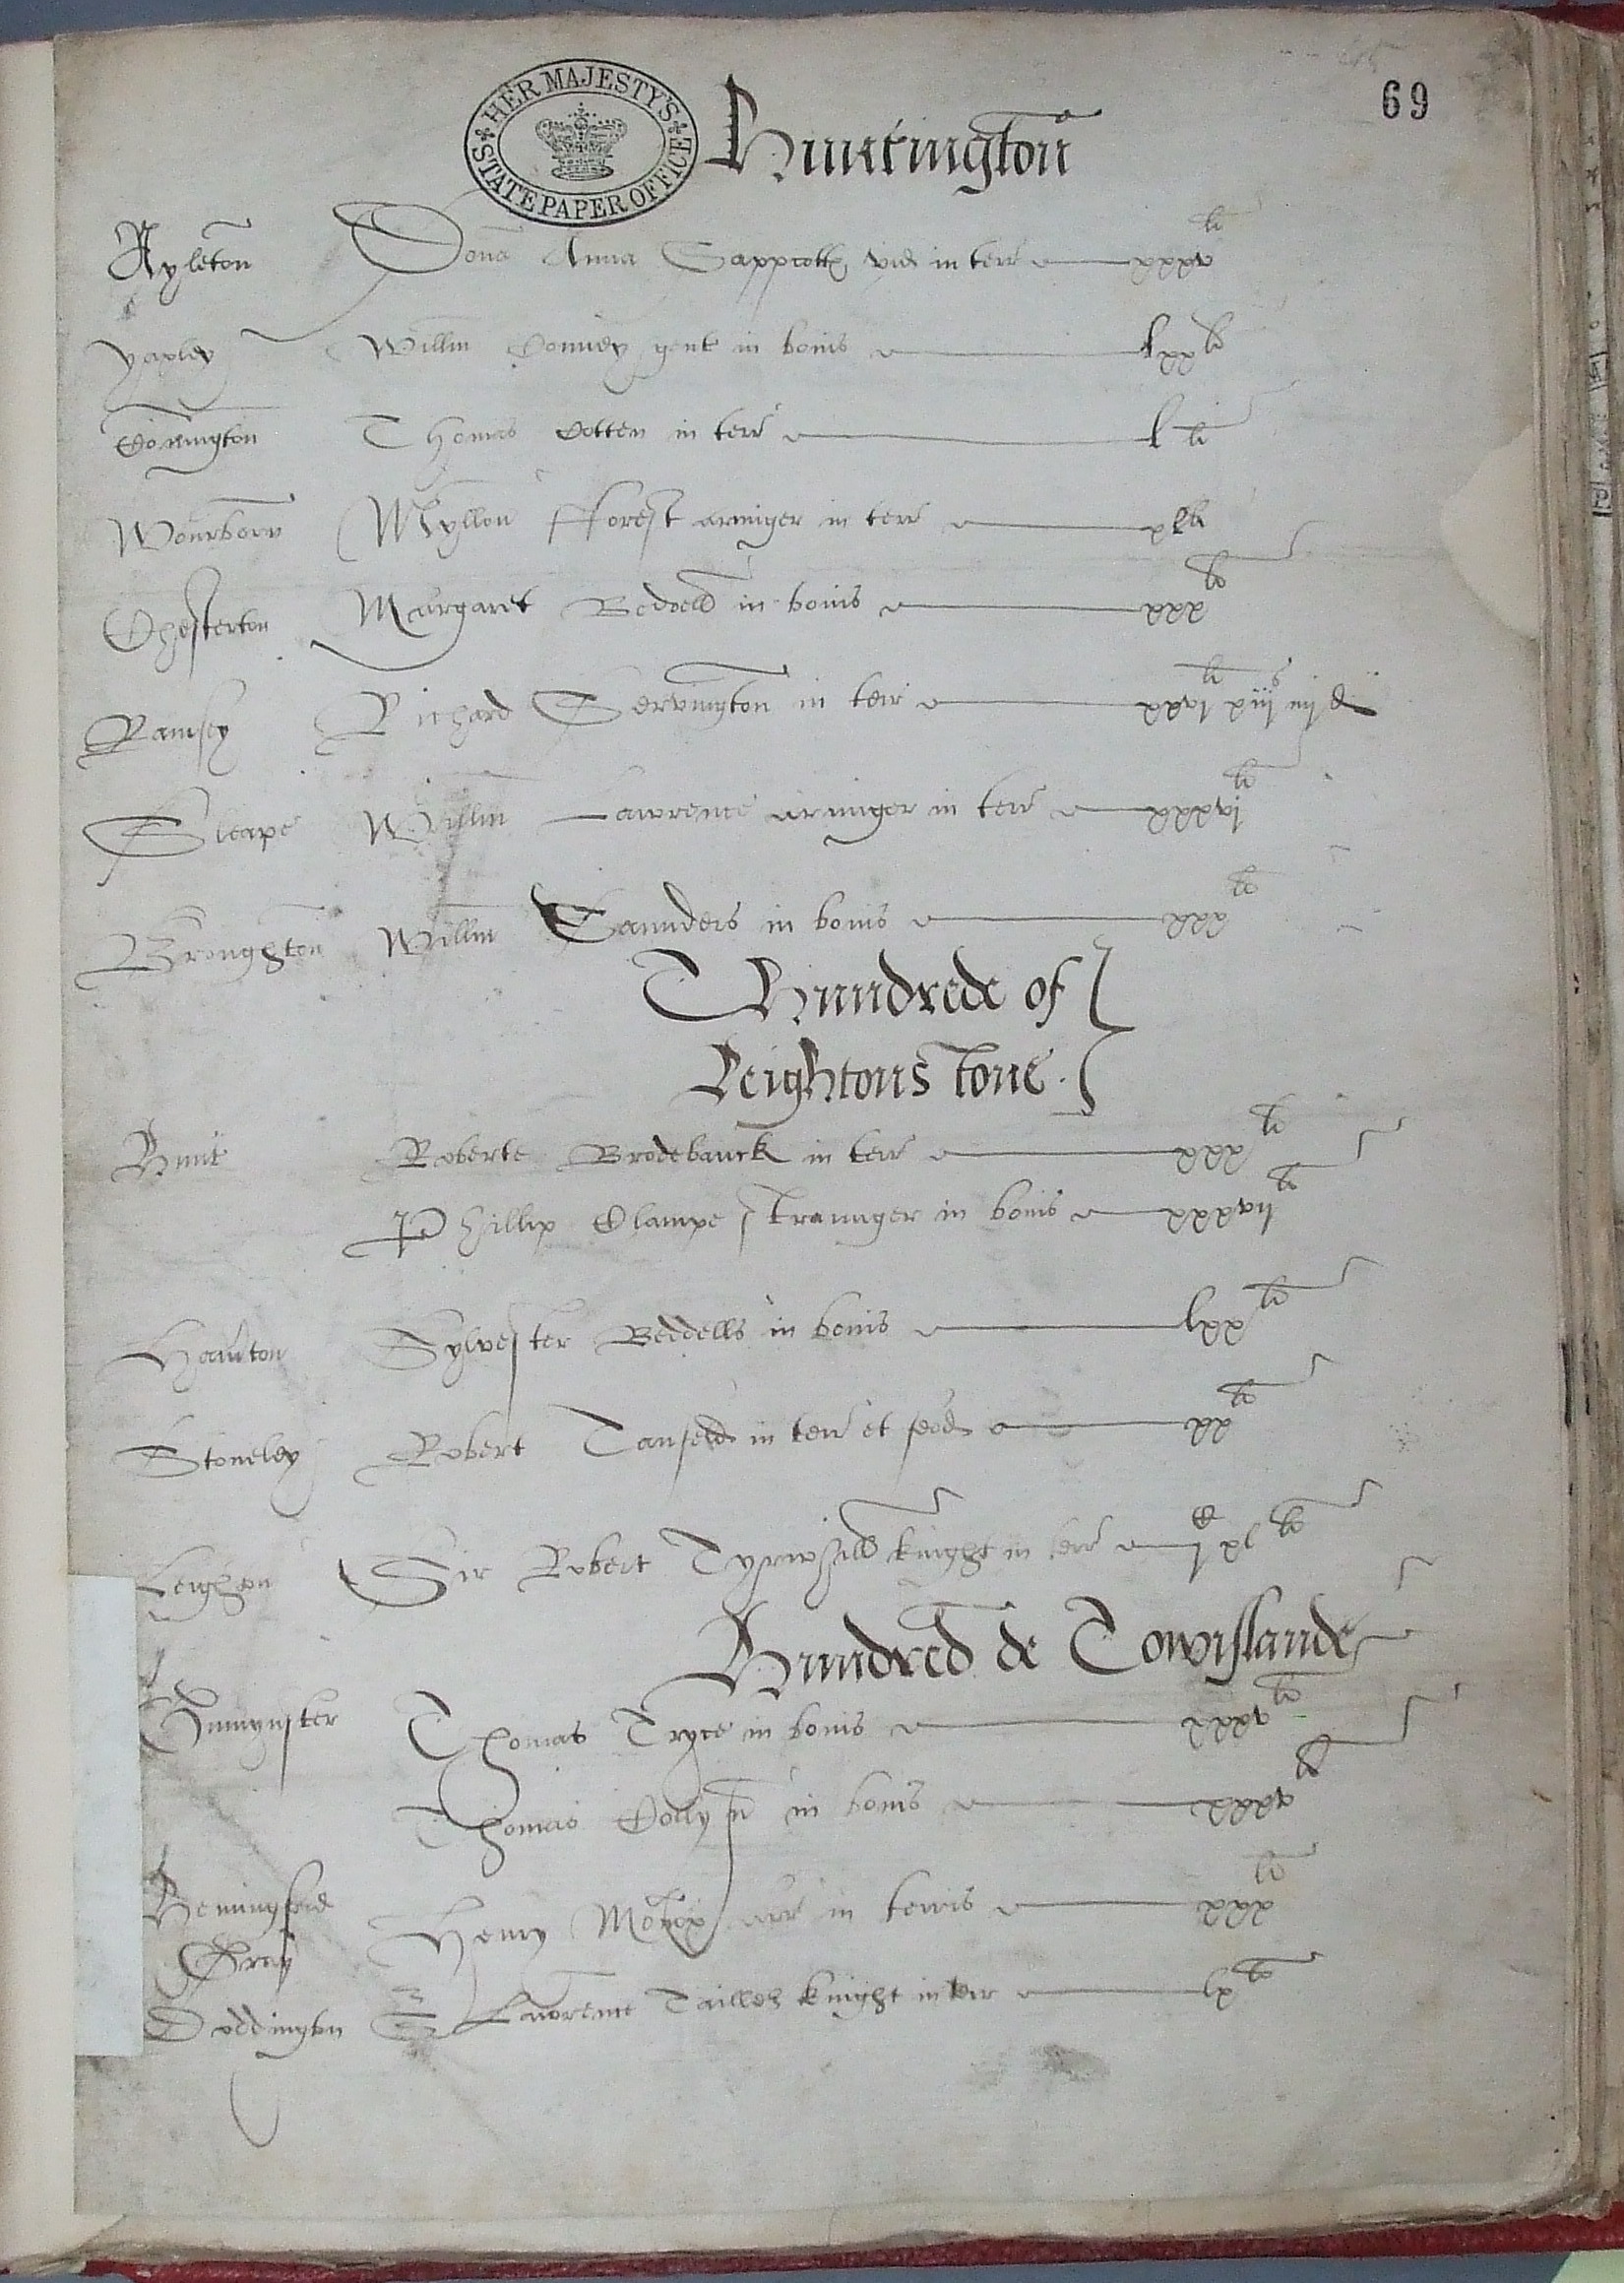 69
HER MAJESTY'S STATE PAPER OFFICE
Huntington
Ayleton Dona Anna Sappcott vid in terr xxxv li
Yaxley Willm Conney gent in bonis lxx li
Conington Thomas Cotten in terr l li
Wourborn Myllon fforest armiger in terr xl li
Chesterton Margaret Bedoell in bonis xxx li
Ramsey Richard Servington in terr xxvj li xiij s iiij d
Sleape Willm Lawrence arminger in terr xxxvj li
Broughton Willm Saunders in bonis xxx li
Thundrede of
Leightonstone
Hunt Roberte Brodebanck in terr xxx li
Phillip Clampe straunger in bonis xxxvij li
Hamton Sylvester Beddells in bonis lxx li
Stoneley Robert Tanfeld in terr et feod xx li
Leighton Sir Robert Tyrwhill knight in terr j C xl li
Hundred de Towislande
Thomas Tryce in bonis xxxv li
Thomas in bonis xxxv li
Hemingford Henry Monox arr in terris xxx li
Gray
Doddington Lawrence Tailleh knight in terr lx li